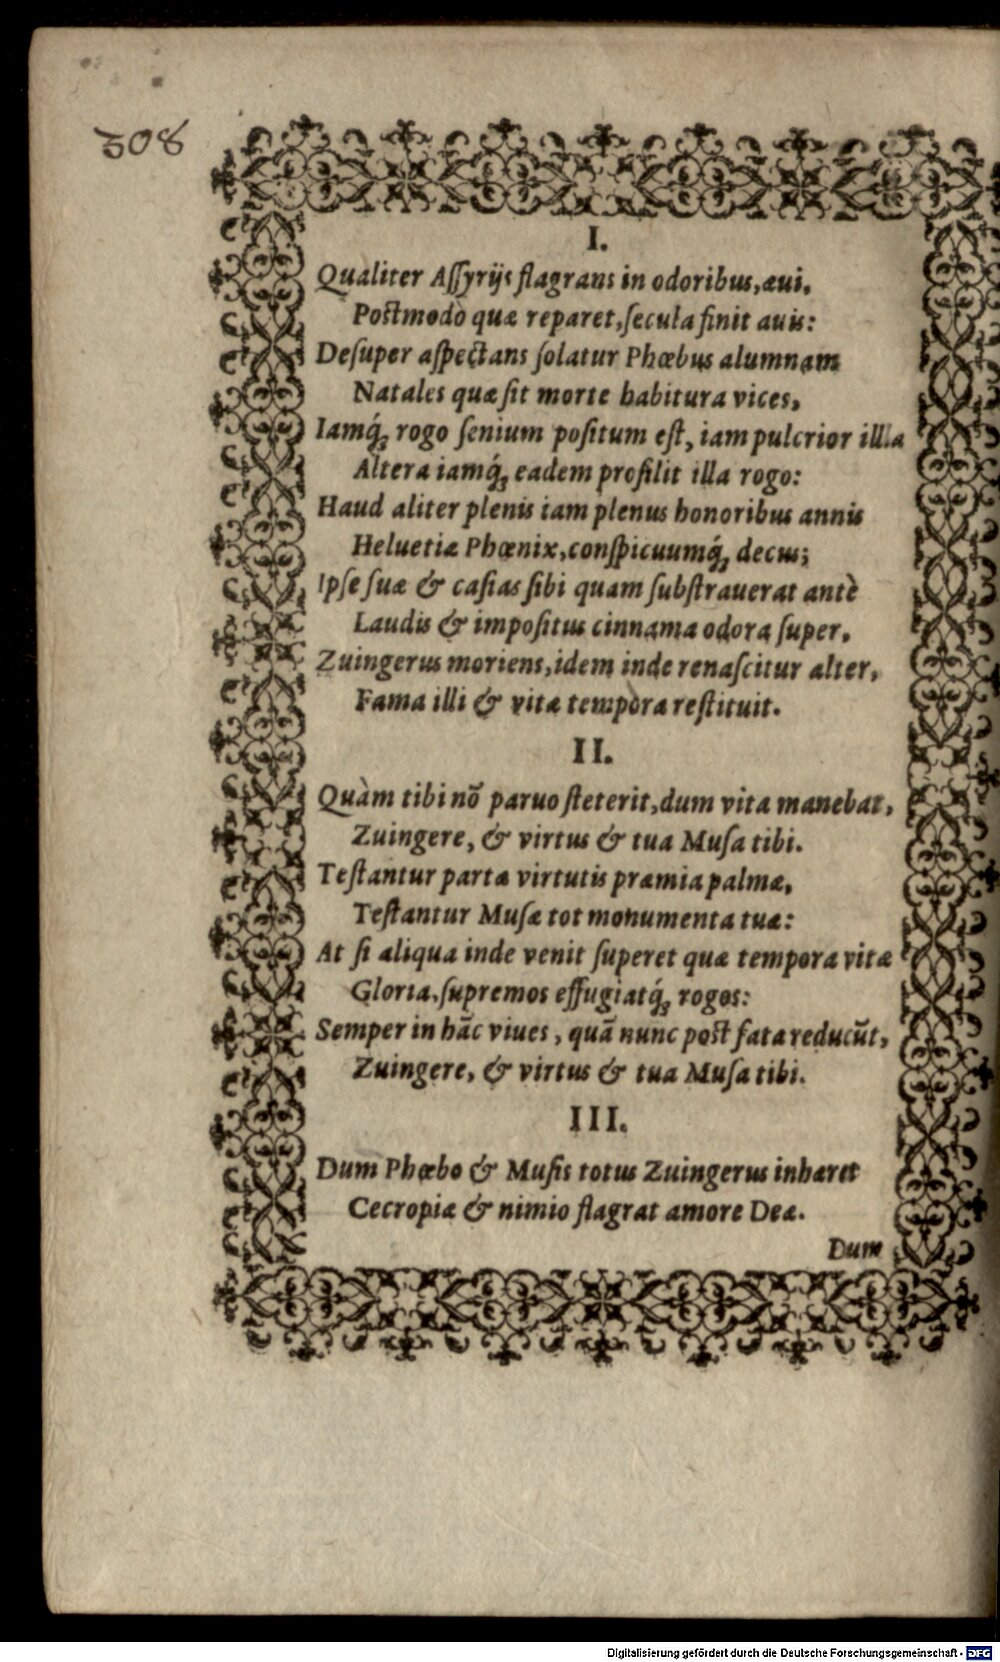 308
I.
Qualiter Aſſyrijs flagrans in odoribus, æui,
Poſtmodò quæ reparet, ſecula finit auis:
Deſuper aſpectans ſolatur Phœbus alumnam
Natales quæ ſit morte habitura vices,
Iamq́ꝫ rogo ſenium poſitum eſt, iam pulcrior illla
Altera iamq́ꝫ eadem proſilit illa rogo:
Haud aliter plenis iam plenus honoribus annis
Heluetiæ Phœnix, conſpicuumq́ꝫ decus;
Ipſe ſuæ & caſias ſibi quam ſubſtrauerat antè
Laudis & impoſitus cinnama odora ſuper,
Zuingerus moriens, idem inde renaſcitur alter,
Fama illi & vitæ tempòra reſtituit.
II.
Quàm tibi nõ paruo ſteterit, dum vita manebat,
Zuingere, & virtus & tua Muſa tibi.
Teſtantur partæ virtutis præmia palmæ,
Teſtantur Muſæ tot monumenta tuæ:
At ſi aliqua inde venit ſuperet quæ tempora vitæ
Gloria, ſupremos effugiatq́ꝫ rogos:
Semper in hãc viues, quã nunc poſt fata reducũt,
Zuingere, & virtus & tua Muſa tibi.
III.
Dum Phœbo & Muſis totus Zuingerus inhæret
Cecropiæ & nimio flagrat amore Deæ.
Dum
Digitalisierung gefördert durch die Deutsche Forschungsgemeinschaft - DFG